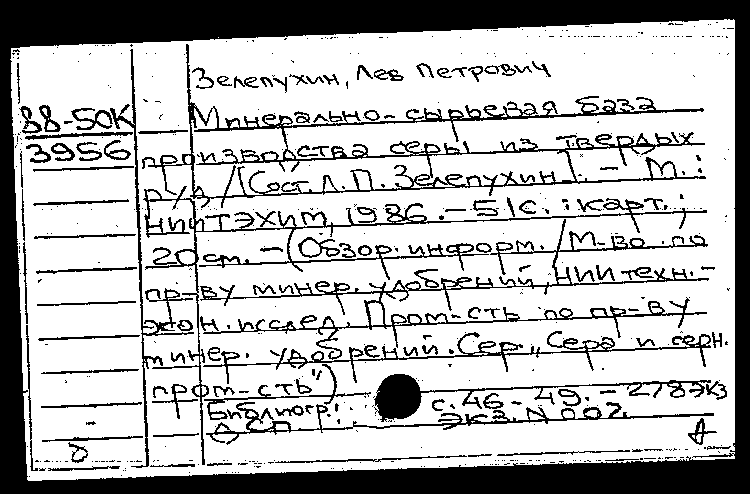 Зелепухин, Лев Петрович
88-50К
3956
Минерально-сырьевая база
производства серы из твердых
руд / [Сост. Л. П. Зелепухин]. – М. :
НИИТЭХИМ, 1986. – 51с. : карт. ;
20 cm. – (Обзор. информ. / М-во по
пр-ву минер. удобрений, НИИ техн.-
экон. исслед. Пром-сть по пр-ву
минер. удобрений. Сер. „Сера и серн.
пром-сть")
Библиогр.: с. 46-49. – 278 экз
ДСП экз. N 002.